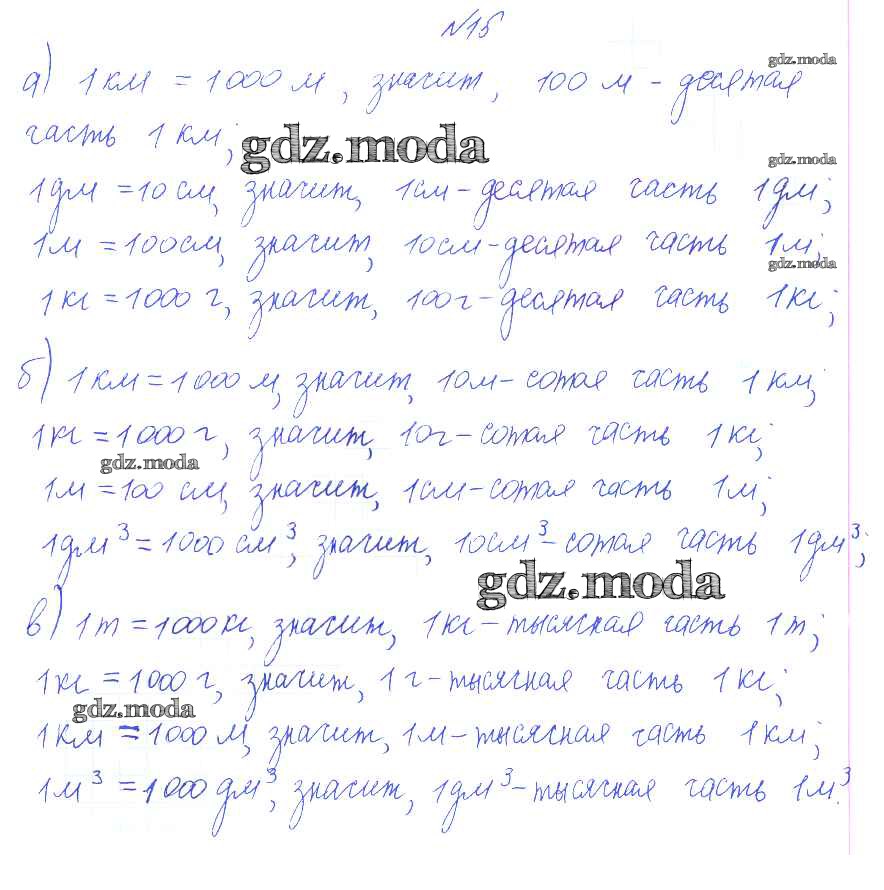 №15
gdz.moda
а) 1 км = 1000 м, значит, 100 м - десятая
часть 1 км;
gdz.moda
gdz.moda
1дм = 10 см, значит, 1см - десятая часть 1дм;
1м = 100см, значит, 10см - десятая часть 1м;
gdz.moda
1кг = 1000 г, значит, 100г - десятая часть 1кг;
б) 1 км = 1000 м, значит, 10м - сотая часть 1 км;
1кг = 1000 г, значит, 10г - сотая часть 1кг;
gdz.moda
1м = 100 см, значит, 1см - сотая часть 1м;
1дм³ = 1000 см³, значит, 10см³ - сотая часть 1дм³;
gdz.moda
в) 1т = 1000кг, значит, 1кг - тысячная часть 1т;
1кг = 1000 г, значит, 1г - тысячная часть 1кг;
gdz.moda
1км = 1000 м, значит, 1м - тысячная часть 1км;
1м³ = 1000 дм³, значит, 1дм³ - тысячная часть 1м³.